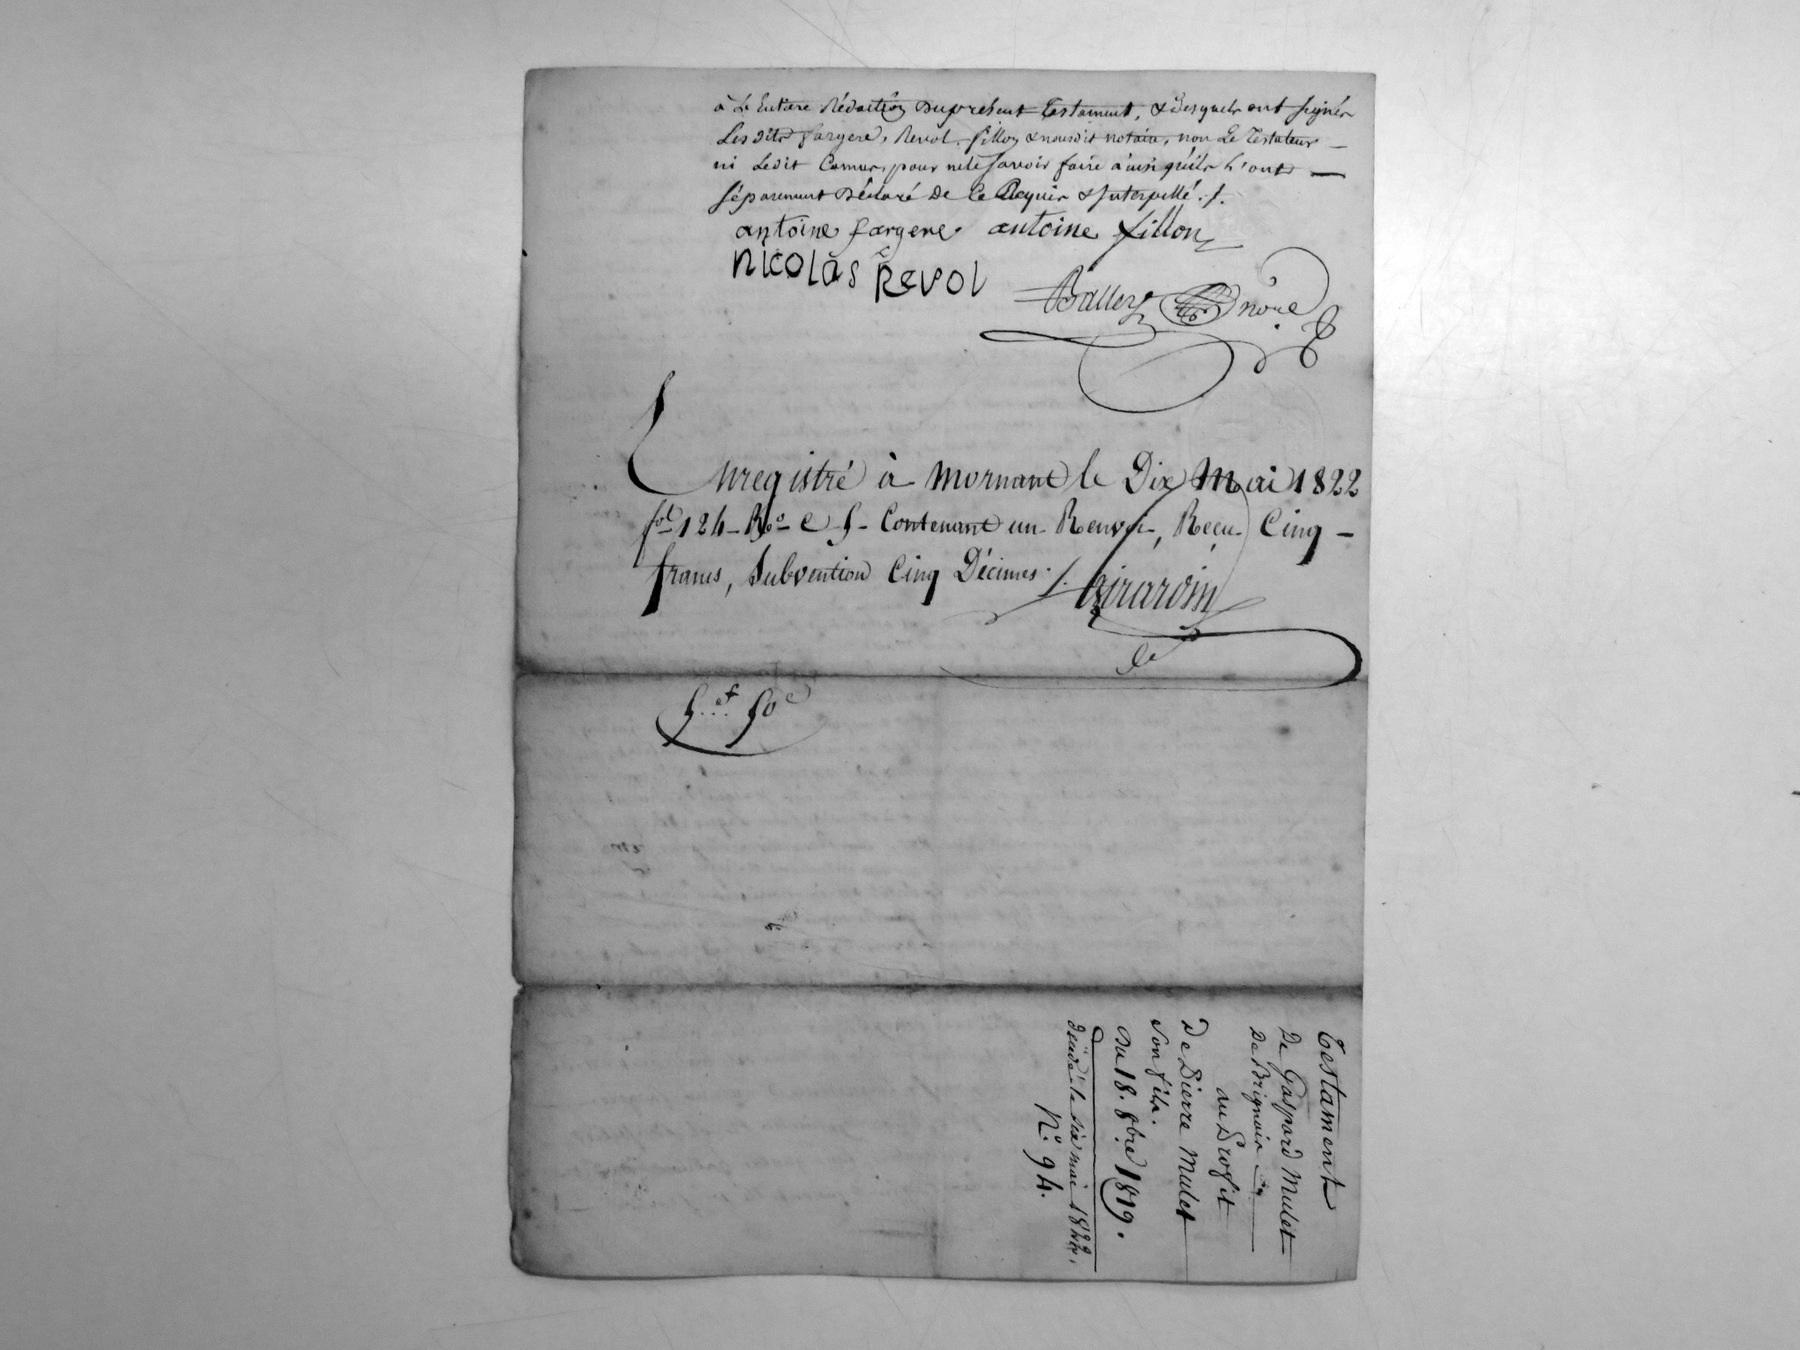 à L'Entiere Rédaction Du présent Testament, & Desquels ont signés
Les dits fargere, Revol, fillon & nousdit notaire, non Le Testateur
ni Ledit Camus, pour ne le savoir faire ainsi qu'ils L'ont
séparement Déclaré De Ce Requis & Interpellé ./.
antoine fargere antoine fillon
Nicolas Revol
Ballet nore
Enregistré à Mornant le Dix Mai 1822
fol 124 Ro C 5 Contenant un Renvoi, Reçu Cinq
francs, Subvention Cinq Décimes ./. Girardin
5.f 50c
Testament
De Gaspard Mulet
De Brignais
au Profit
De Pierre Mulet
son fils.
Du 18. 8bre 1819.
le six mai 1822.
No. 94.